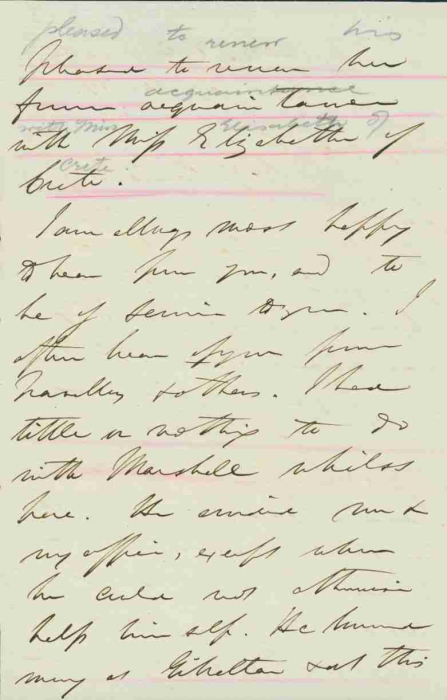 pleased to renew his
pleased to renew her
acquaintance
former acquaintance
with Miss Elizabeth of
with Miss Elizabeth of
Crete
Crete.
I am always most happy
to hear from you, and to
be of service to you. I
often hear of you from
travellers & others. I had
little or nothing to do
with Marshall whilst
here. He avoided me &
my office, except when
he could not otherwise
help himself. He
many at Gibraltar & at this